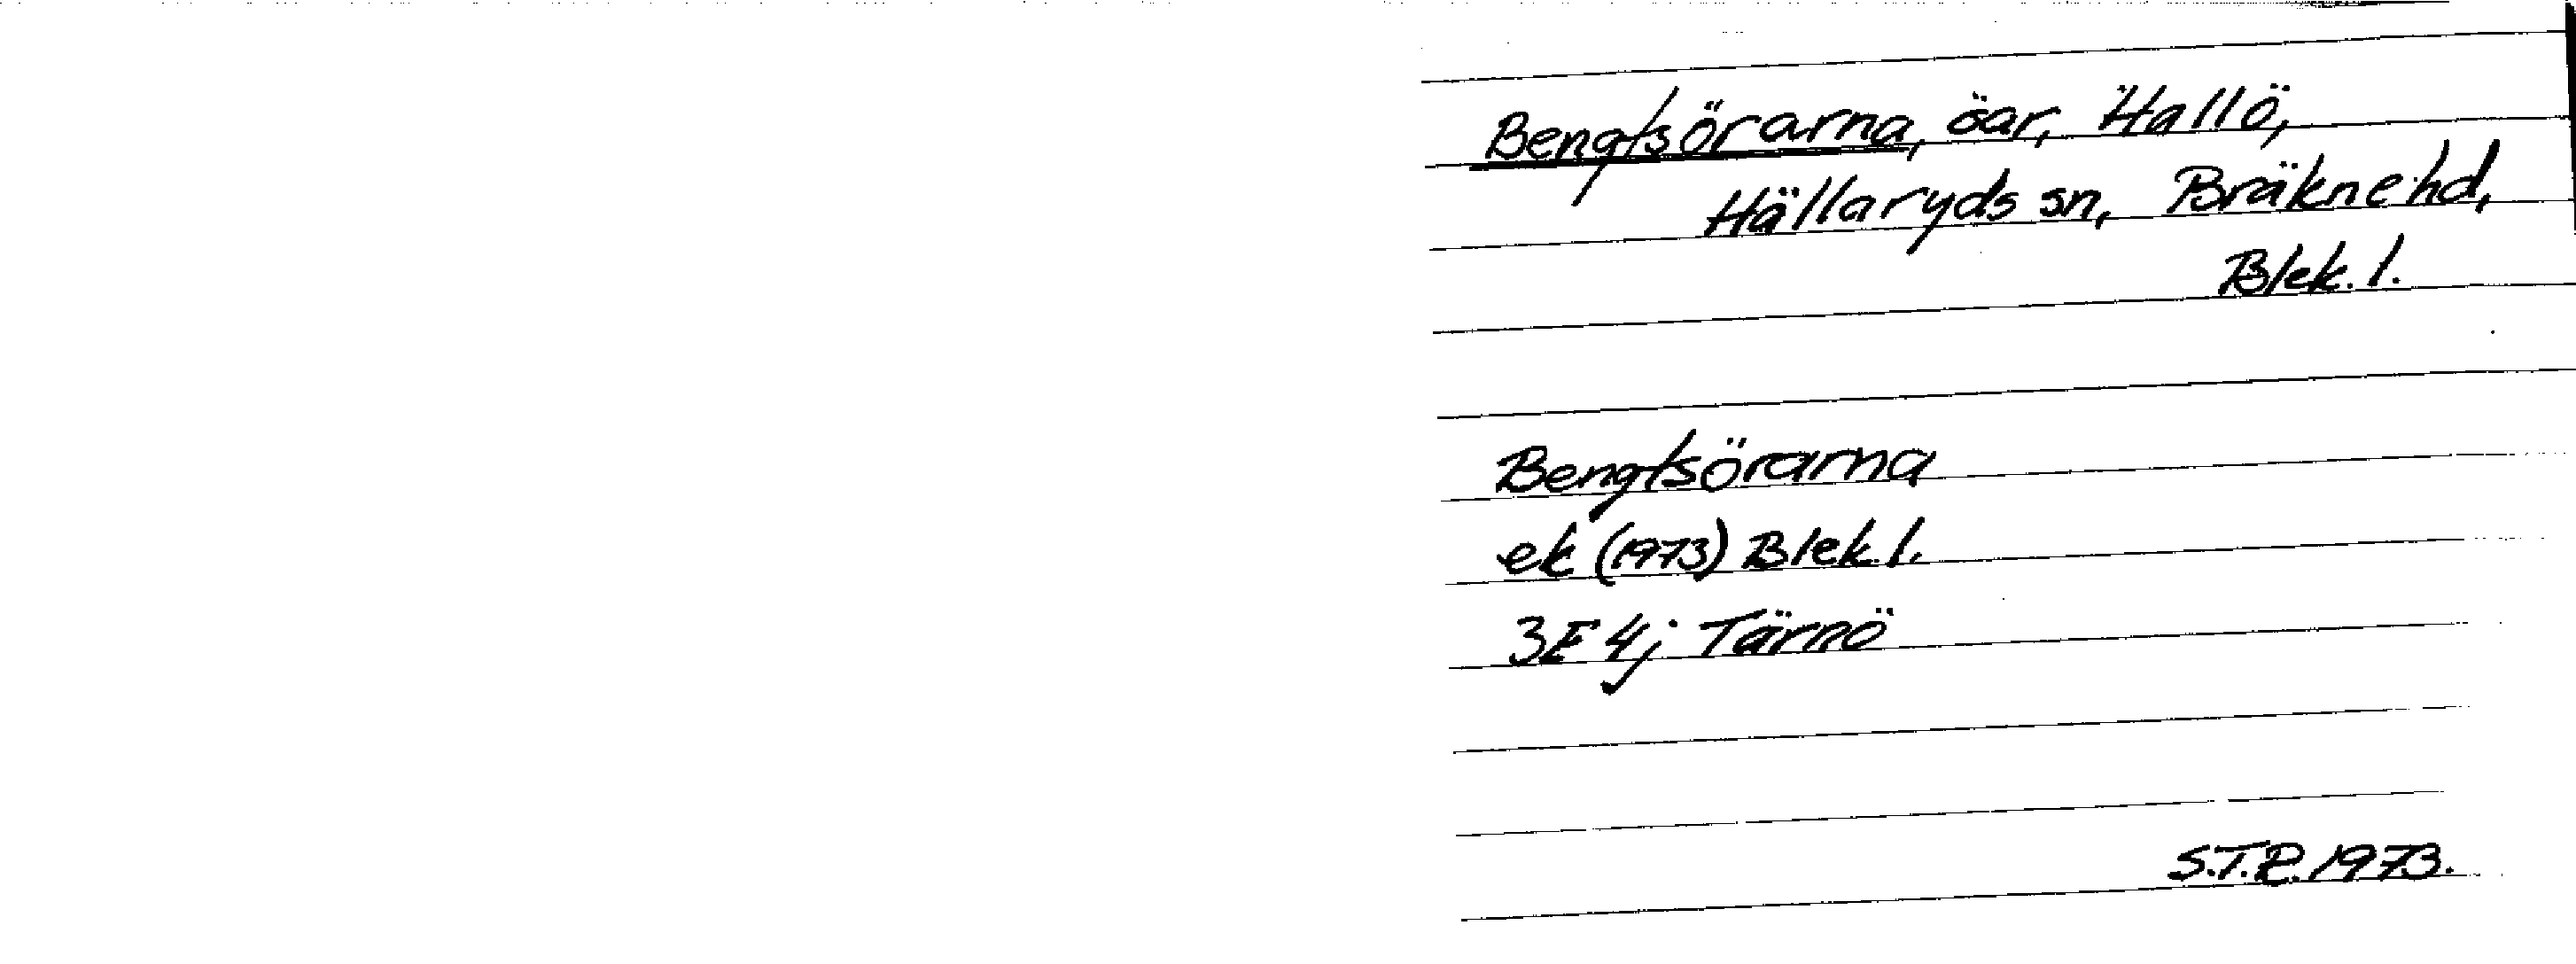 Bengtsörarna, öar, Hallö,
Hällaryds sn, Bräkne hd,
Blek. l.
Bengtsörarna
ek (1973) Blek. l.
3E 4j Tärnö
S.T.R. 1973.